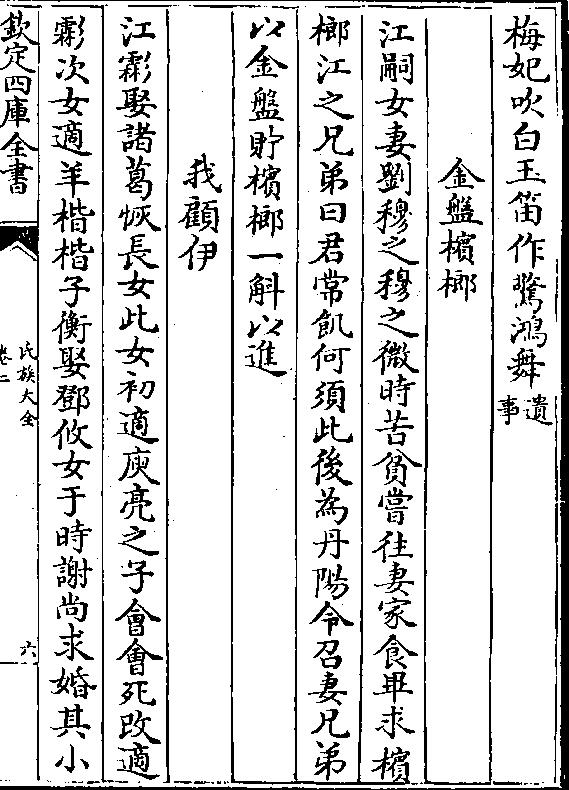 梅妃吹白玉笛作驚鴻舞遺事
金盤檳榔
江嗣女妻劉穆之穆之微時苦貧嘗往妻家食畢求檳
榔江之兄弟曰君常飢何須此後為丹陽令召妻兄弟
以金盤貯檳榔一斛以進
我顧伊
江虨娶諸葛恢長女此女初適庾亮之子會會死改適
虨次女適羊楷楷子衡娶鄧攸女于時謝尚求婚其小
欽定四庫全書
氏族大全
卷二
六